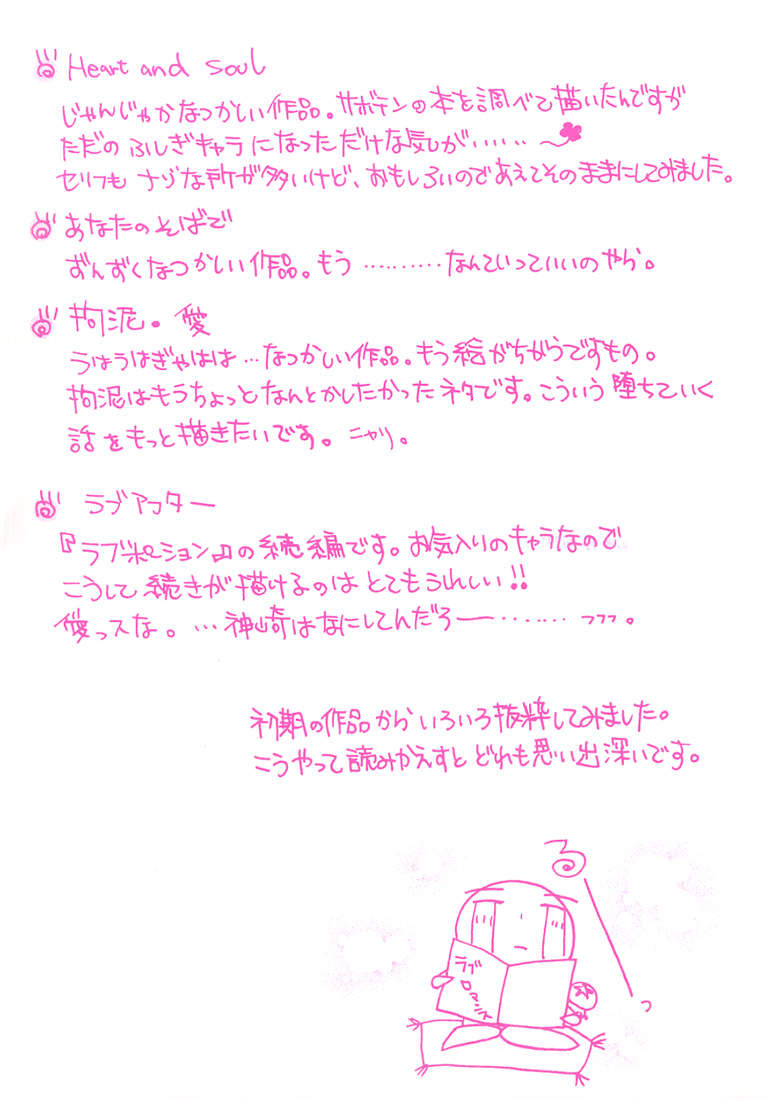 Heart and Soul
じゃんじゃかなつかしい作品。サボテンの本を調べて描いたんですが
ただのふしぎキャラになっただけな気が……
セリフもナゾな所が多いけど、おもしろいのであえてそのままにしてみました。
あなたのそばで
ずんずくなつかしい作品。もう ………なんていっていいのやら。
拘泥。愛
うはうはぎゃはは…なつかしい作品。もう絵がちがうですもの。
拘泥はもうちょっとなんとかしたかったネタです。こういう堕ちていく
話をもっと描きたいです。ニヤリ。
ラブアフター
『ラブポーション』の続編です。お気入りのキャラなので
こうして続きが描けるのはとてもうれしい!!
愛っスな。…神崎はなにしてんだろー……フフフ。
初期の作品からいろいろ抜粋してみました。
こうやって読みかえすとどれも思い出深いです。
る
っ
ラブ